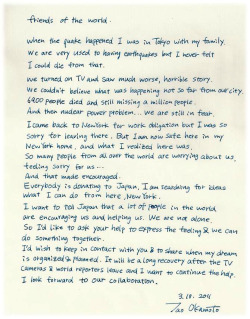 friends of the world.
when the quake happened I was in Tokyo with my family.
We are very used to having earthquakes but I never felt
I could die from that.
we turned on TV and saw much worse, horrible story.
We couldn't believe what was happening not so far from our city.
6900 people died and still missing a million people.
And then nuclear power problem... we are still in fear.
I came back to New York for work obligation but I was so
sorry for leaving there. But I am now safe here in my
New York home, and what I realized here was,
So many people from all over the world are worrying about us,
feeling sorry for us...
And that made encouraged.
Everybody is donating to Japan, I am searching for ideas
what I can do from here, New York.
I want to tell Japan that a lot of people in the world,
are encouraging us and helping us. We are not alone.
So I'd like to ask your help to express the feeling & we can
do something together.
I'd wish to keep in contact with you & to share when my dream
is organized & planned. It will be a long recovery after the TV
cameras & world reporters leave and I want to continue the help.
I look forward to our collaboration.
3.18.2011
Tao Okamoto